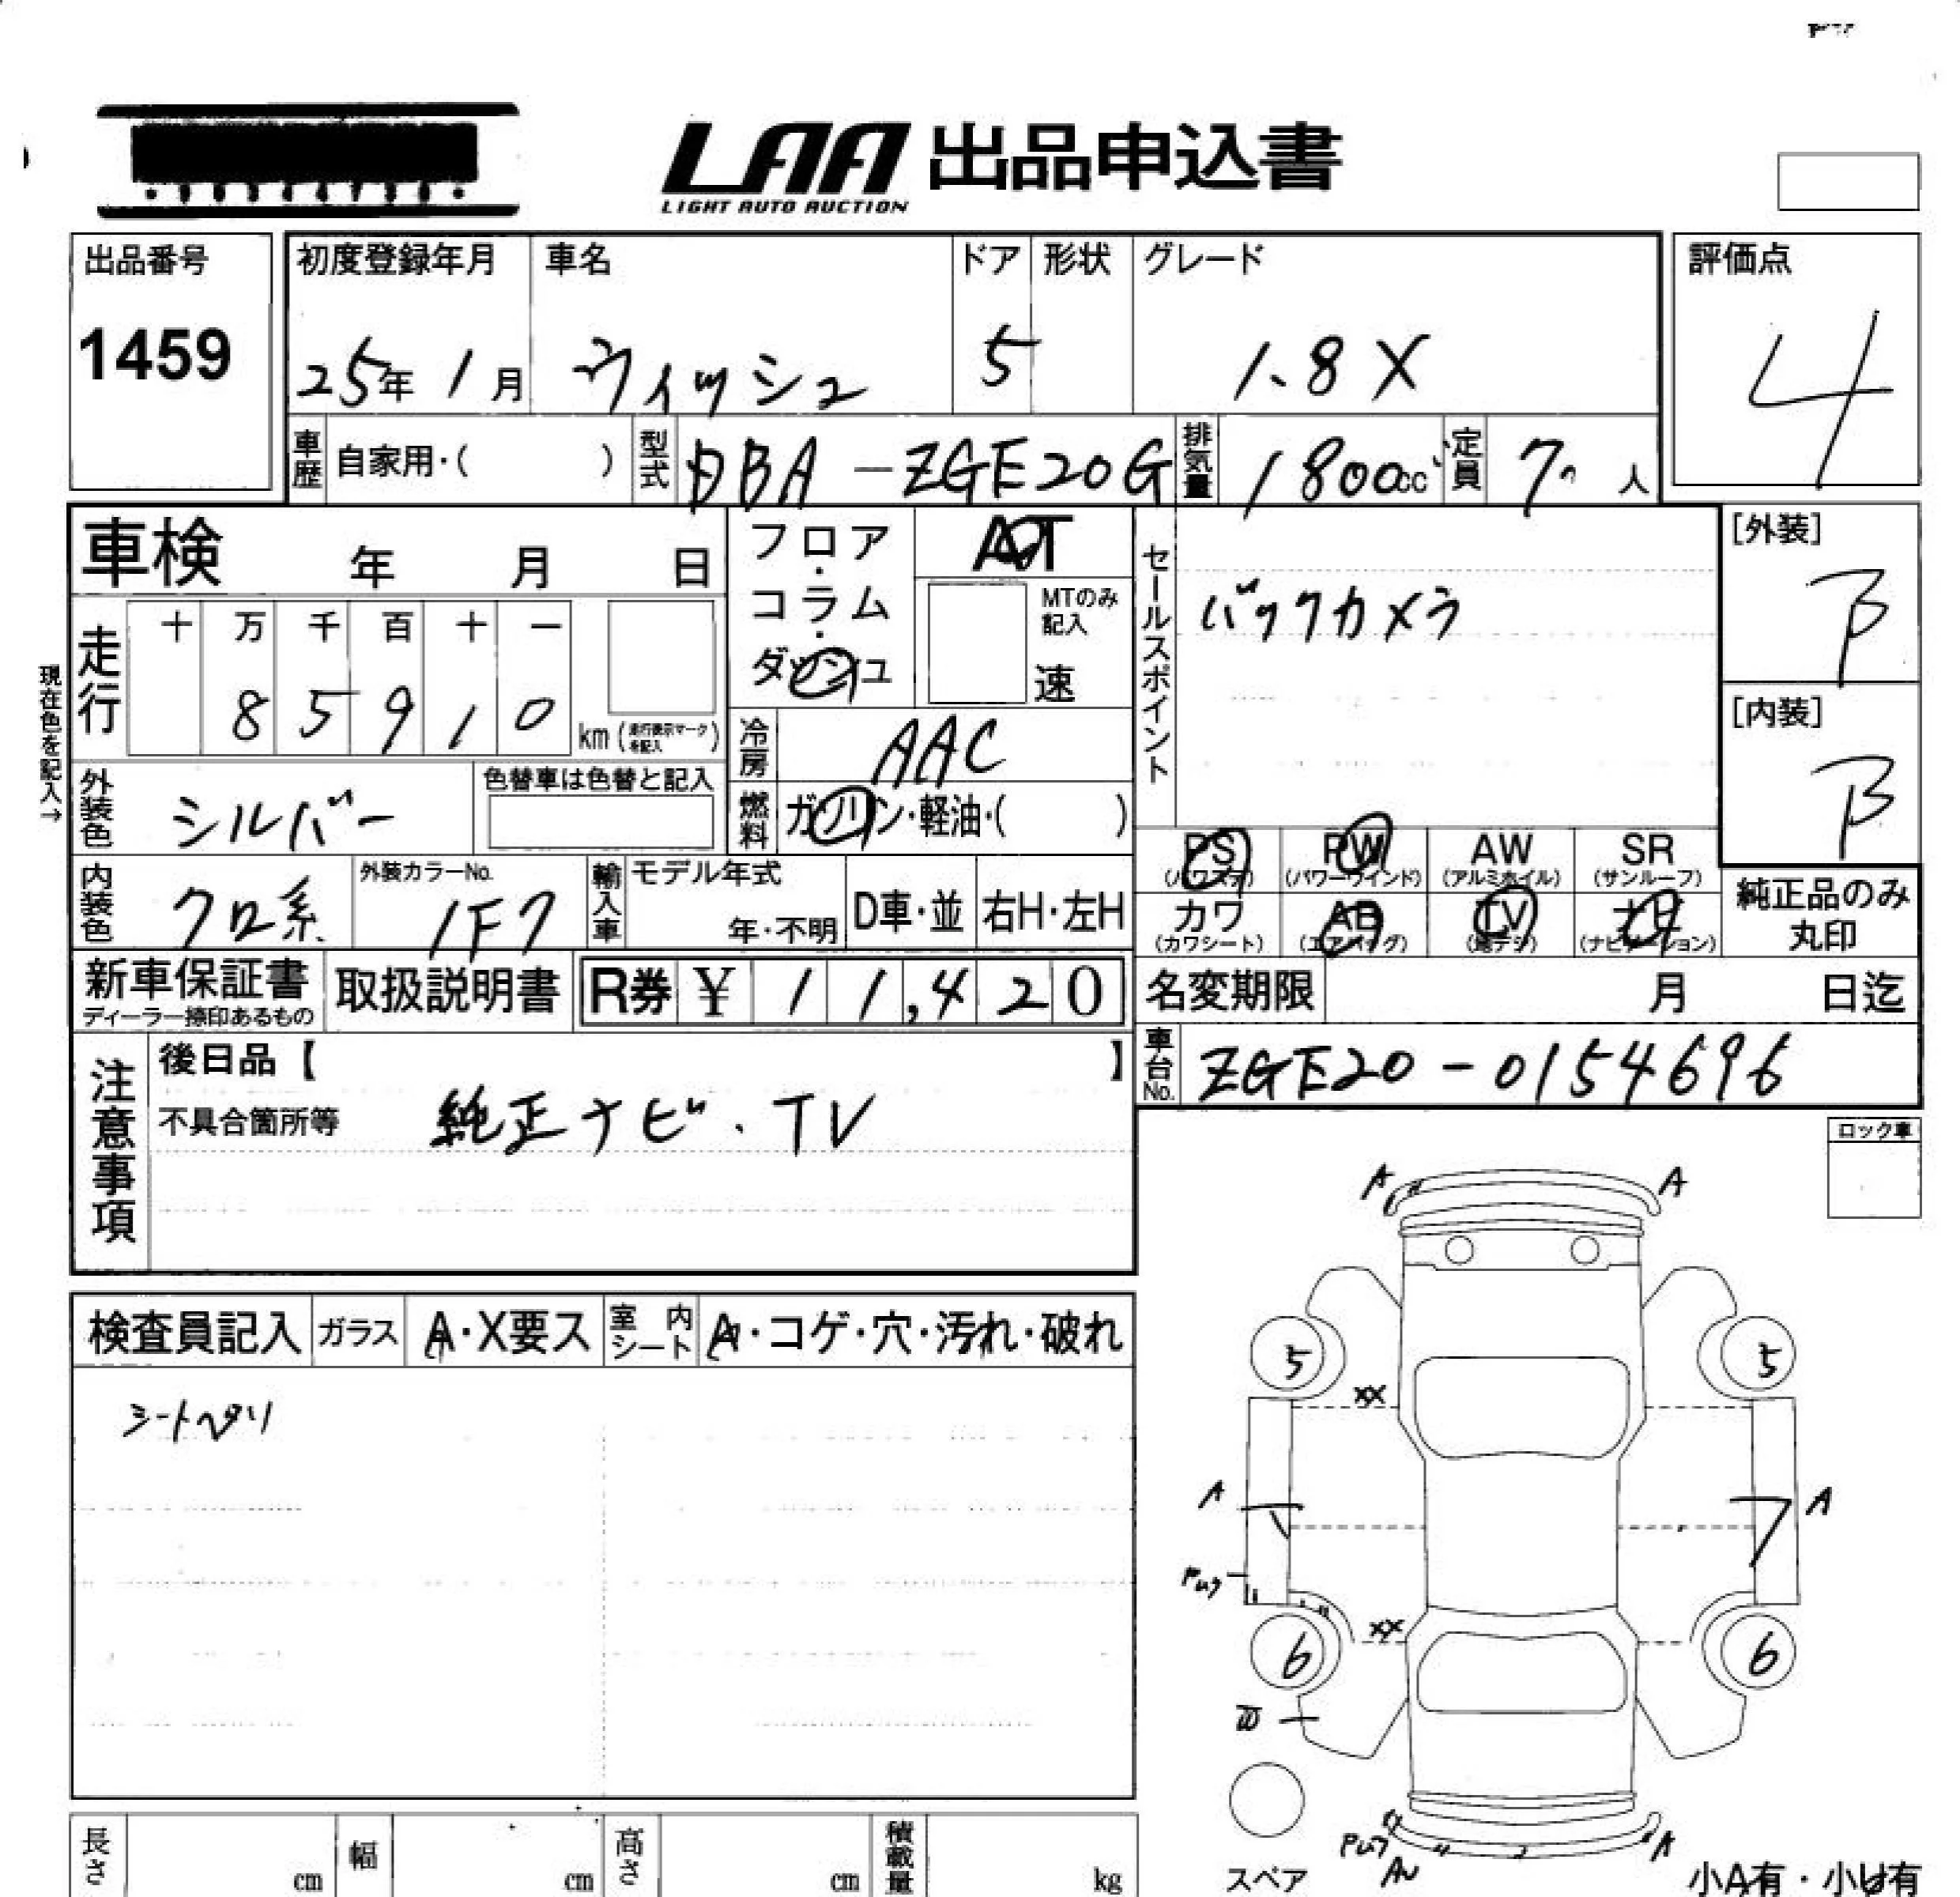 LAA 出品申込書
LIGHT AUTO AUCTION
出品番号
1459
初度登録年月 車名 ドア 形状 グレード
25年 1月 ウィッシュ 5 1.8X
評価点
4
車歴 自家用・( ) 型式 DBA-ZGE20G 排気量 1800cc 定員 7人
車検 年 月 日
フロア・コラム・ダッシュ
AT
MTのみ記入
速
セールスポイント
バックカメラ
[外装]
B
[内装]
B
現在色を記入→
走行 十 万 千 百 十 一
8 5 9 1 0 km (走行表示マークを記入)
冷房 AAC
外装色 シルバー 色替車は色替と記入
燃料 ガソリン・軽油・( )
PS (パワステ) PW (パワーウインド) AW (アルミホイル) SR (サンルーフ)
カワ (カワシート) AB (エアバッグ) TV (地デジ) ナビ (ナビゲーション)
純正品のみ丸印
内装色 クロ系 外装カラーNo. 1F7 輸入車 モデル年式 年・不明 D車・並 右H・左H
新車保証書 ディーラー捺印あるもの 取扱説明書 R券 ¥ 1 1,4 2 0
名変期限 月 日迄
車台No. ZGE20-0154696
注意事項
後日品【 】
不具合箇所等 純正ナビ・TV
ロック車
検査員記入 ガラス A・X要ス 室内シート A・コゲ・穴・汚れ・破れ
シートヘタリ
A A
5 5
XX
A A
XX
6 6
A
スペア
小A有・小U有
長さ cm 幅 cm 高さ cm 積載量 kg